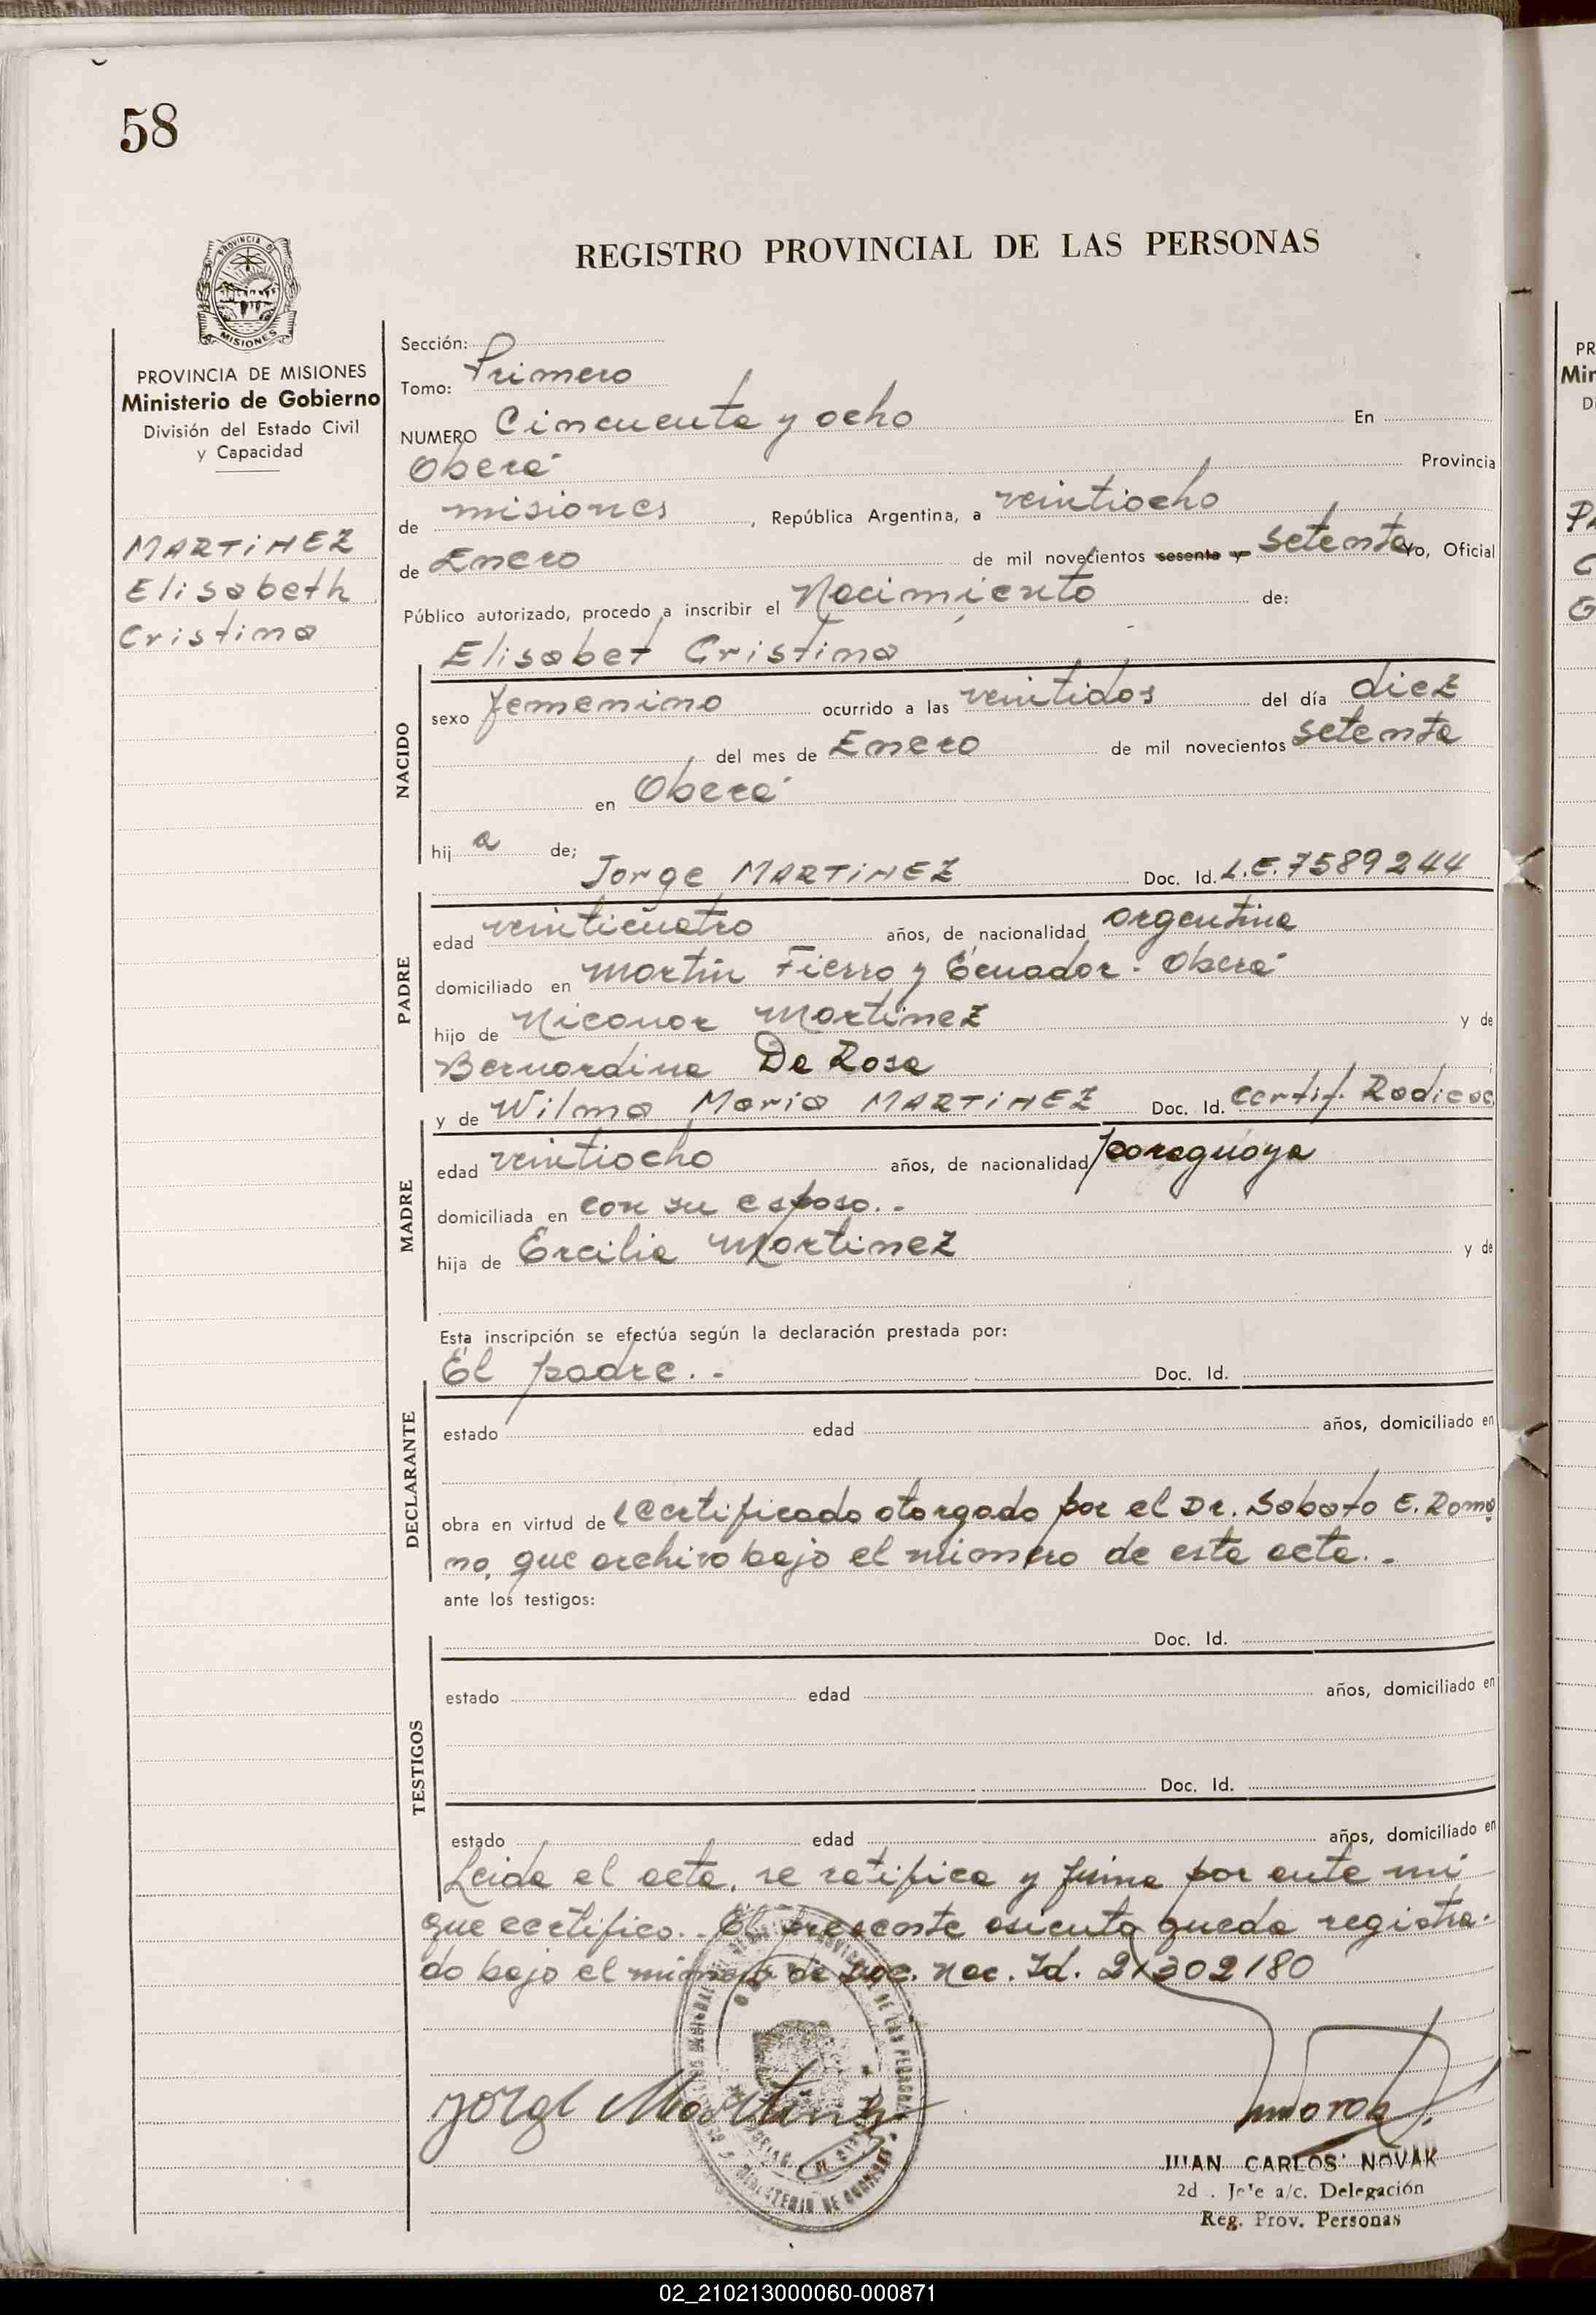 58
PROVINCIA DE
MISIONES
REGISTRO PROVINCIAL DE LAS PERSONAS
PROVINCIA DE MISIONES
Ministerio de Gobierno
División del Estado Civil
y Capacidad
MARTINEZ
Elisabeth
Cristina
Sección:
Tomo: Primero
NUMERO Cincuenta y ocho En
Oberá Provincia
de misiones, República Argentina, a veintiocho
de Enero de mil novecientos sesenta y setenta Yo, Oficial
Público autorizado, procedo a inscribir el Nacimiento de:
Elisabet Cristina
NACIDO
sexo femenino ocurrido a las veintidos del día diez
del mes de Enero de mil novecientos setenta
en Oberá
hij a de;
Jorge MARTINEZ Doc. Id. L.E. 7589244
PADRE
edad veinticuatro años, de nacionalidad argentina
domiciliado en Martín Fierro y Ecuador - Oberá
hijo de Nicanor Martinez y de
Bernardina Da Rosa
y de Wilma Maria MARTINEZ Doc. Id. Certif. Radicac
MADRE
edad veintiocho años, de nacionalidad paraguaya
domiciliada en con su esposo.-
hija de Ercilia Martinez y de
Esta inscripción se efectúa según la declaración prestada por:
El padre.- Doc. Id.
DECLARANTE
estado edad años, domiciliado en
obra en virtud de certificado otorgado por el Dr. Sabato E. Roma
no, que archivo bajo el número de esta acta.-
ante los testigos:
Doc. Id.
TESTIGOS
estado edad años, domiciliado en
Doc. Id.
estado edad años, domiciliado en
Leida el acta, se ratifica y firma por ante mi
que certifico.- El presente asiento queda registra-
do bajo el número de Doc. Nac. Id. 21302180
Jorge Martinez
Novak
JUAN CARLOS NOVAK
2d . Jefe a/c. Delegación
Reg. Prov. Personas
PR
Min
D
02_210213000060-000871